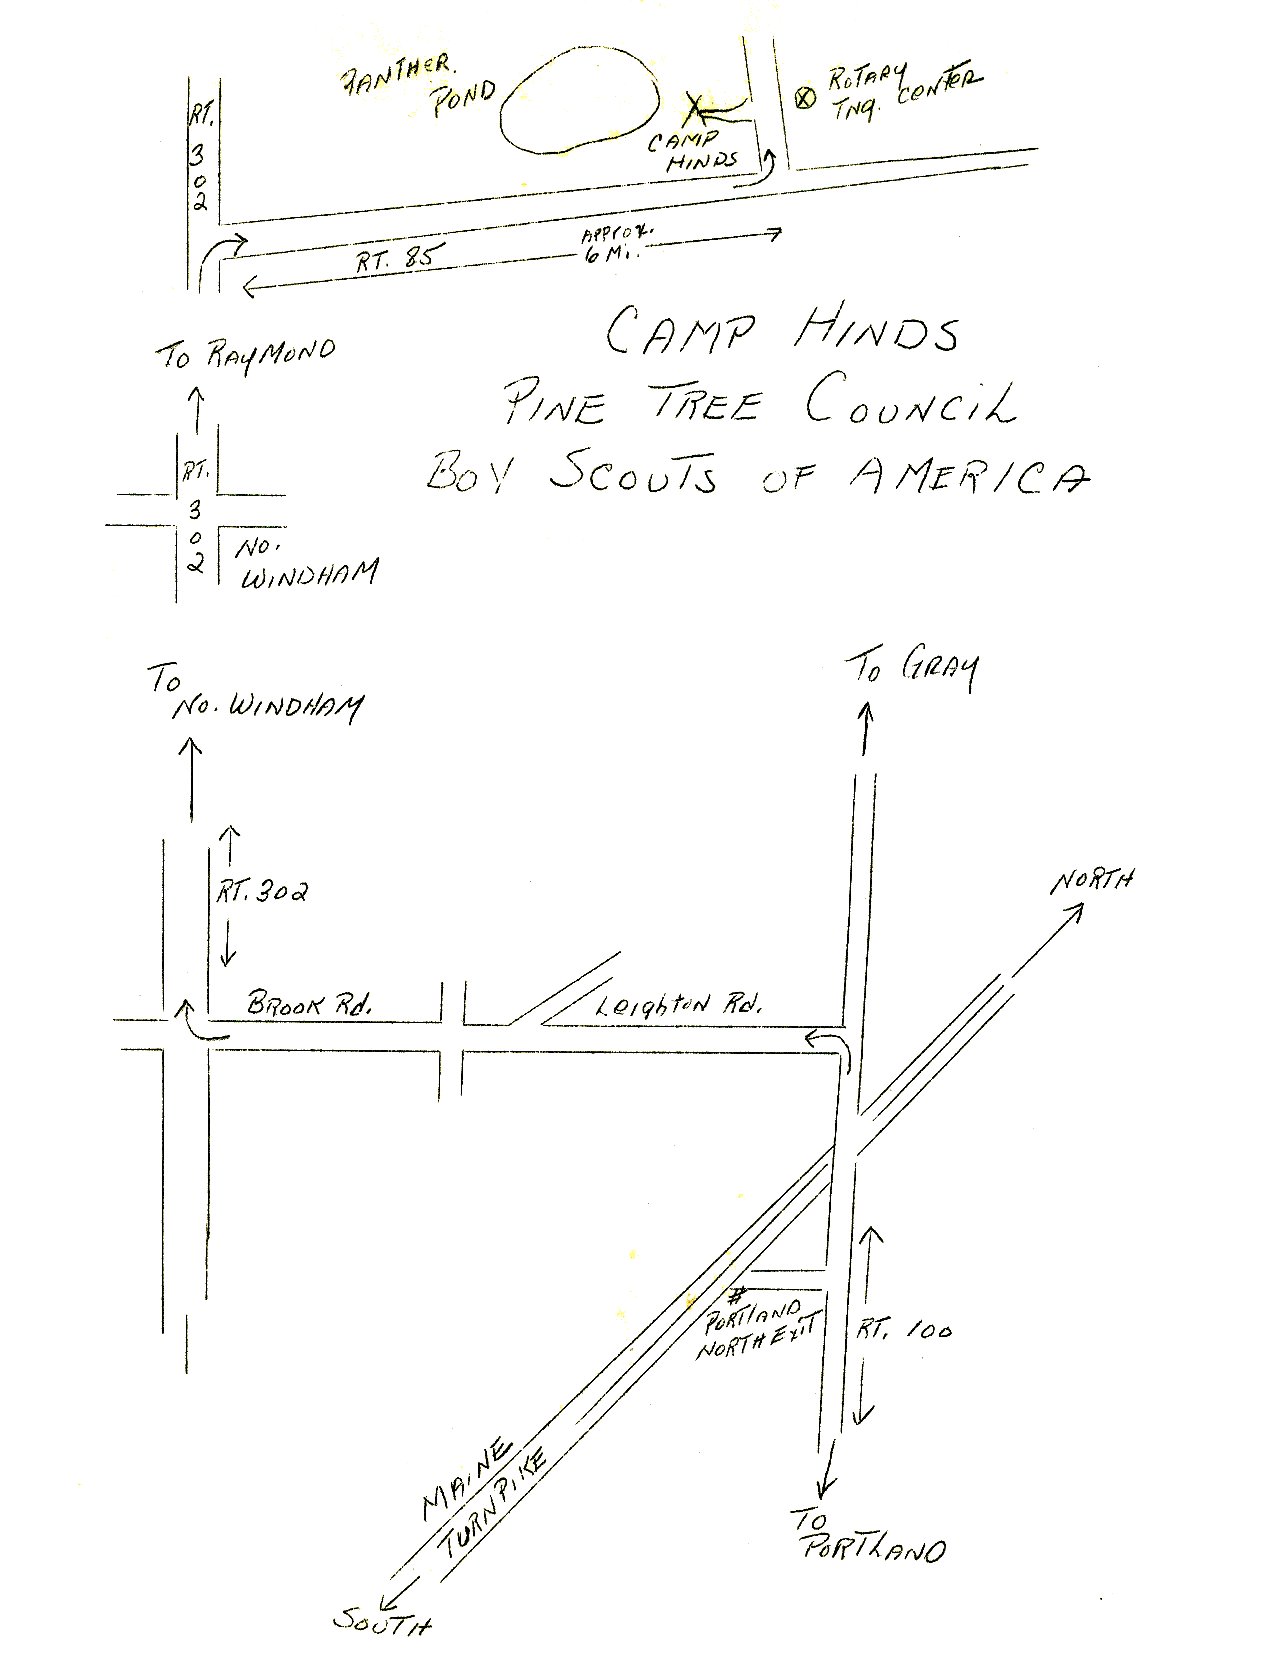 PANTHER.
POND
ROTARY
TNG. CENTER
CAMP
HINDS
RT.
302
APPROX.
6 Mi.
RT. 85
CAMP HINDS
PINE TREE COUNCIL
BOY SCOUTS OF AMERICA
TO RAYMOND
RT.
302
NO.
WINDHAM
TO
NO. WINDHAM
TO GRAY
NORTH
RT. 302
BROOK Rd.
Leighton Rd.
#
PORTLAND
NORTH EXIT
RT. 100
MAINE
TURNPIKE
TO
PORTLAND
SOUTH